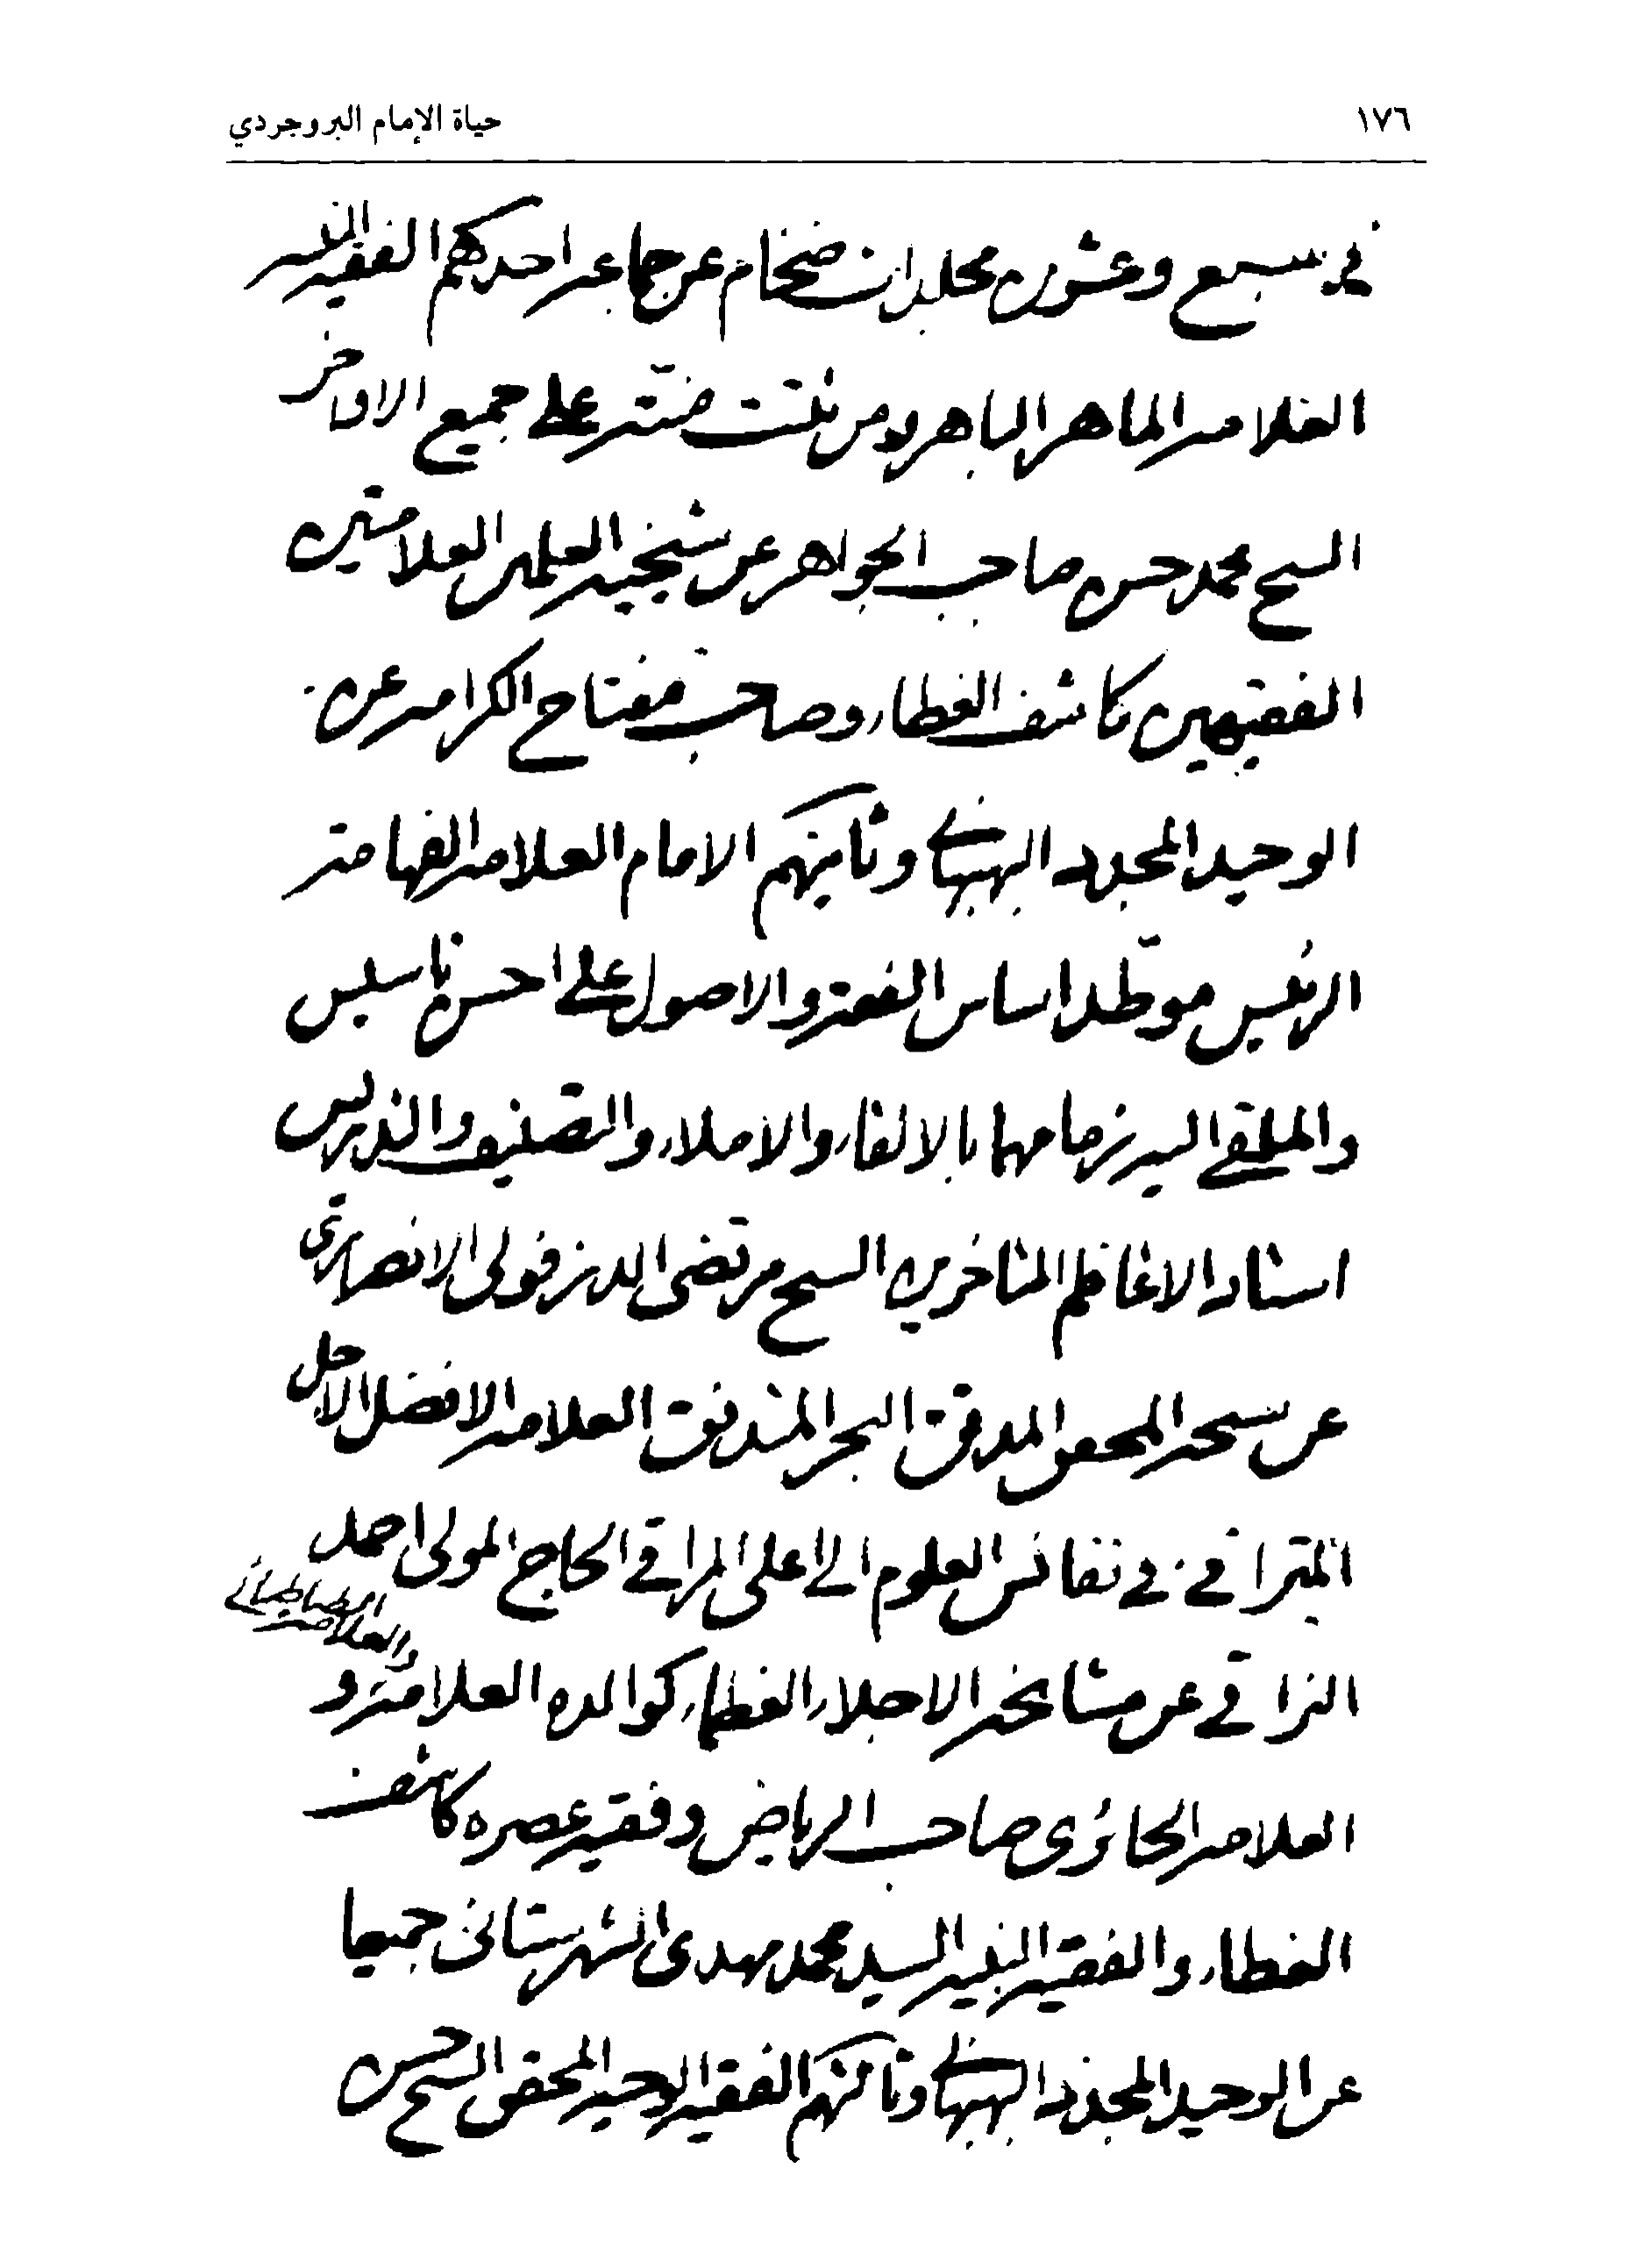 ١٧٦
حياة الإمام البروجردي
في سبع وعشرين مجلدات ضخام عن جماعة احدهم الفقيه
العلامة الماهر الباهر ومن ثبتت منّته على جميع الاواخر
الشيخ محمد حسن صاحب الجواهر عن شيخيه العلمين العلامتين
الفقيهين كاشف الغطاء وصاحب مفتاح الكرامة عن
الوحيد المجدد البهبهاني وثانيهم الامام العلامة الفهامة
الرئيس موطّد اساس الفقه والاصول على احسن تاسيس
والملقى اليه زمامهما بالالقاء والاملاء والتصنيف والتدريس
استاد الاعاظم المتاخرين الشيخ مرتضى الدزفولى الانصارى
عن شيخه المحقق المدقق البحر المتدفق العلامة الافضل الاجل
المتراقي في نفائس العلوم الى اعلى المراقي الحاج المولى احمد
النراقي عن مشايخه الاجلاء العظماء كوالده العلامة و
والعلامة الطباطبائي
العلامة الحائرى صاحب الرياض وفقيه عصره كاشف
الغطاء والفقيه النبيه السيد محمد مهدى الشهرستانى جميعا
عن الوحيد المجدد البهبهاني وثالثهم الفقيه الوحيد المحقق الشيخ حسن